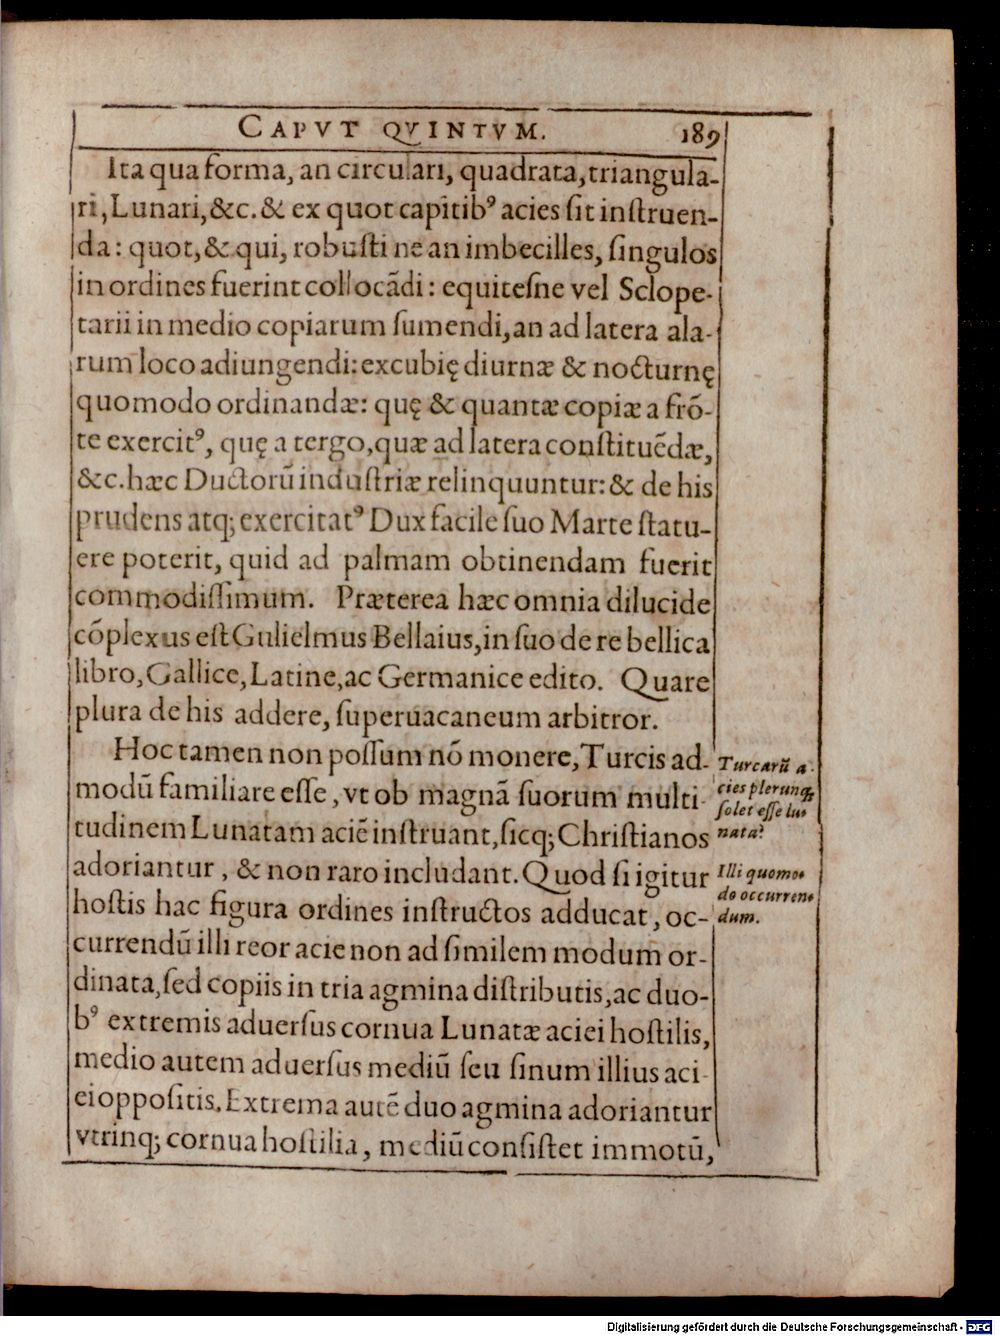 CAPVT QVINTVM. 189
Ita qua forma, an circulari, quadrata, triangula-
ri, Lunari, &c. & ex quot capitibꝰ acies ſit inſtruen-
da: quot, & qui, robuſti ne an imbecilles, ſingulos
in ordines fuerint collocãdi: equiteſne vel Sclope-
tarii in medio copiarum ſumendi, an ad latera ala-
rum loco adiungendi: excubię diurnæ & nocturnę
quomodo ordinandæ: quę & quantæ copiæ a frõ-
te exercitꝰ, quę a tergo, quæ ad latera conſtituẽdæ,
&c. hæc Ductorũ induſtriæ relinquuntur: & de his
prudens atq; exercitatꝰ Dux facile ſuo Marte ſtatu-
ere poterit, quid ad palmam obtinendam fuerit
commodiſſimum. Præterea hæc omnia dilucide
cõplexus eſt Gulielmus Bellaius, in ſuo de re bellica
libro, Gallice, Latine, ac Germanice edito. Quare
plura de his addere, ſuperuacaneum arbitror.
Hoc tamen non poſſum nõ monere, Turcis ad-
modũ familiare eſſe, vt ob magnã ſuorum multi-
tudinem Lunatam aciẽ inſtruant, ſicq; Chriſtianos
adoriantur, & non raro includant. Quod ſi igitur
hoſtis hac figura ordines inſtructos adducat, oc-
currendũ illi reor acie non ad ſimilem modum or-
dinata, ſed copiis in tria agmina diſtributis, ac duo-
bꝰ extremis aduerſus cornua Lunatæ aciei hoſtilis,
medio autem aduerſus mediũ ſeu ſinum illius aci-
ei oppoſitis. Extrema autẽ duo agmina adoriantur
vtrinq; cornua hoſtilia, mediũ conſiſtet immotũ,
Turcarũ a-
cies plerunq;
ſolet eſſe lu-
nata?
Illi quomo-
do occurren-
dum.
Digitalisierung gefördert durch die Deutsche Forschungsgemeinschaft - DFG